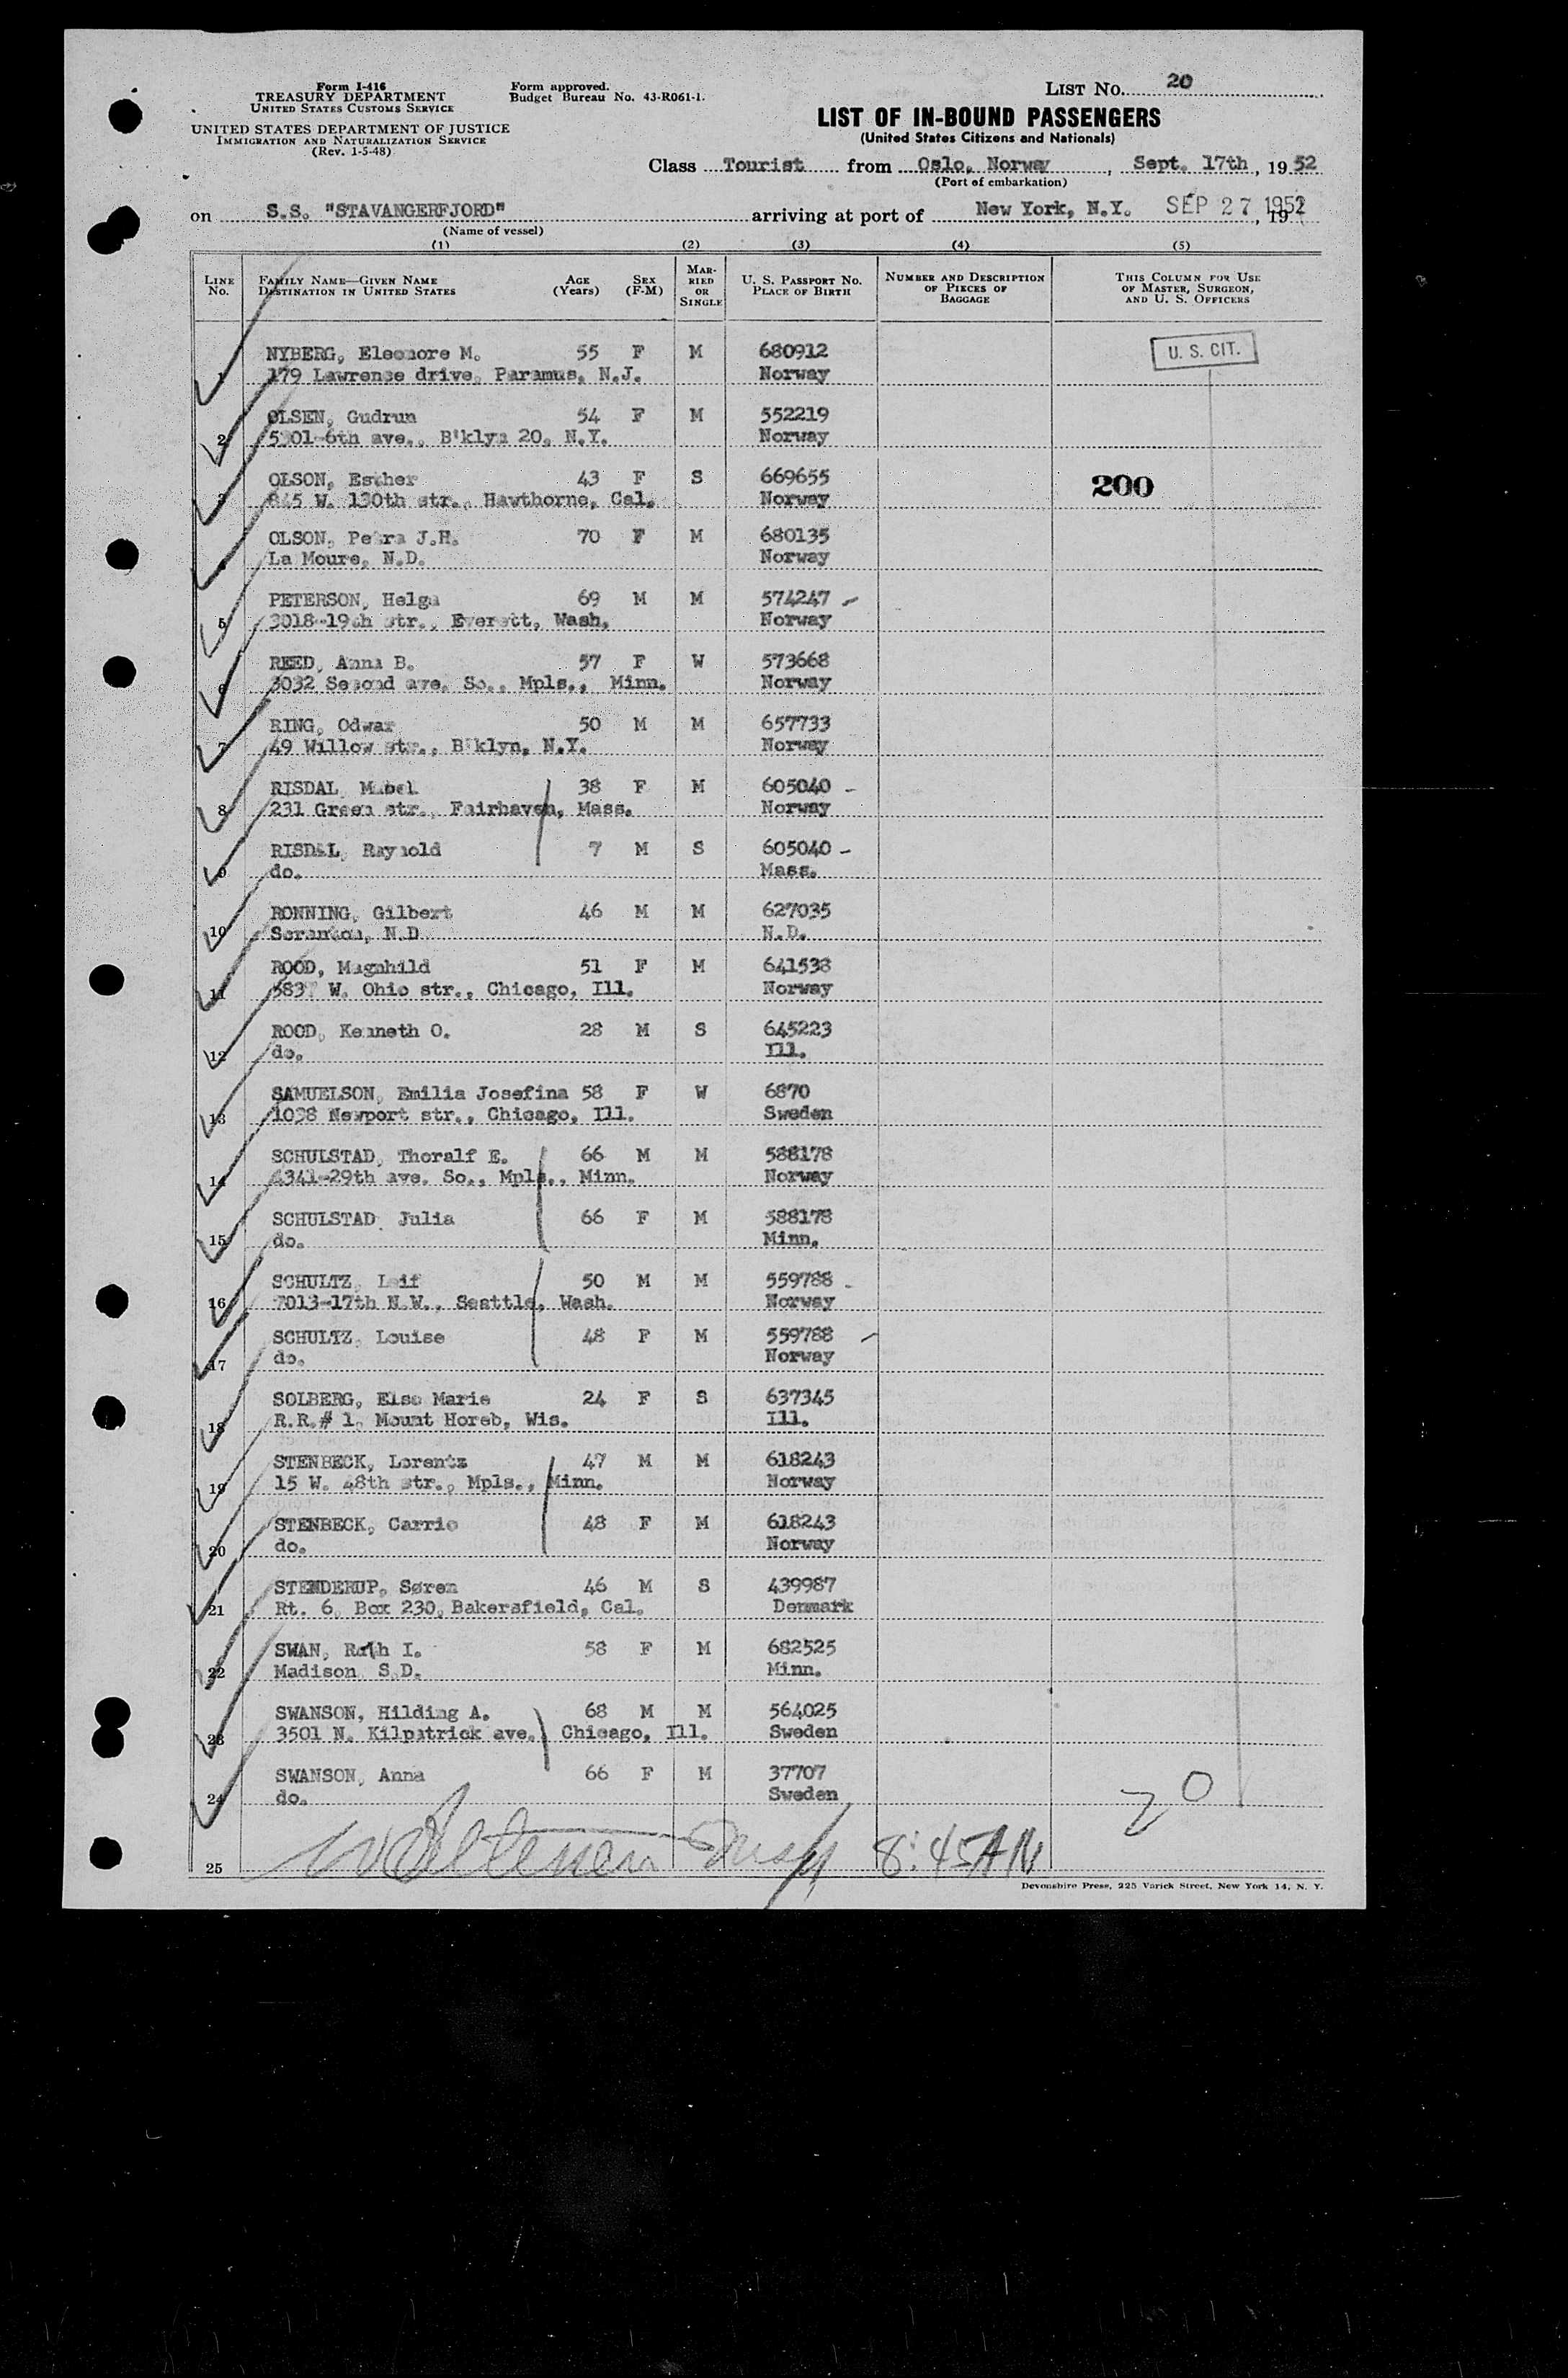 Form I-416
TREASURY DEPARTMENT
UNITED STATES CUSTOMS SERVICE
UNITED STATES DEPARTMENT OF JUSTICE
IMMIGRATION AND NATURALIZATION SERVICE
(Rev. 1-5-48)
Form approved.
Budget Bureau No. 43-R061-1.
LIST NO. 20
LIST OF IN-BOUND PASSENGERS
(United States Citizens and Nationals)
Class Tourist from Oslo, Norway, Sept. 17th, 19 52
(Port of embarkation)
on S.S. "STAVANGERFJORD" arriving at port of New York, N.Y. SEP 27 1952, 19
(Name of vessel)
(1) (2) (3) (4) (5)
LINE NO. FAMILY NAME—GIVEN NAME DESTINATION IN UNITED STATES AGE (Years) SEX (F-M) MARRIED OR SINGLE U. S. PASSPORT NO. PLACE OF BIRTH NUMBER AND DESCRIPTION OF PIECES OF BAGGAGE THIS COLUMN FOR USE OF MASTER, SURGEON, AND U. S. OFFICERS
NYBERG, Eleonore M. 55 F M 680912 U. S. CIT.
1 179 Lawrence drive, Paramus, N.J. Norway
OLSEN, Gudrun 54 F M 552219
2 6th ave., B'klyn 20, N.Y. Norway
OLSON, Esther 43 F S 669655 200
3 845 W. 130th str., Hawthorne, Cal. Norway
OLSON, Petra J.H. 70 F M 680135
La Moure, N.D. Norway
PETERSON, Helga 69 M M 574247
5 3018-19th str., Everett, Wash. Norway
REED, Anna B. 57 F W 573668
6 3032 Second ave. So., Mpls., Minn. Norway
RING, Odwar 50 M M 657733
7 49 Willow str., B'klyn, N.Y. Norway
RISDAL, Mabel 38 F M 605040
8 231 Green str., Fairhaven, Mass. Norway
RISDAL, Raynold 7 M S 605040
9 do. Mass.
RONNING, Gilbert 46 M M 627035
10 Scranton, N.D. N.D.
ROOD, Magnhild 51 F M 641538
11 5837 W. Ohio str., Chicago, Ill. Norway
ROOD, Kenneth O. 28 M S 645223
12 do. Ill.
SAMUELSON, Emilia Josefina 58 F W 6870
13 1038 Newport str., Chicago, Ill. Sweden
SCHULSTAD, Thoralf E. 66 M M 588178
14 4341-29th ave. So., Mpls., Minn. Norway
SCHULSTAD, Julia 66 F M 588178
15 do. Minn.
SCHULTZ, Leif 50 M M 559788
16 7013-17th N.W., Seattle, Wash. Norway
SCHULTZ, Louise 48 F M 559788
17 do. Norway
SOLBERG, Else Marie 24 F S 637345
18 R.R.# 1, Mount Horeb, Wis. Ill.
STENBECK, Lorentz 47 M M 618243
19 15 W. 48th str., Mpls., Minn. Norway
STENBECK, Carrie 48 F M 618243
20 do. Norway
STENDERUP, Søren 46 M S 439987
21 Rt. 6, Box 230, Bakersfield, Cal. Denmark
SWAN, Ruth I. 58 F M 682525
22 Madison, S.D. Minn.
SWANSON, Hilding A. 68 M M 564025
23 3501 N. Kilpatrick ave. Chicago, Ill. Sweden
SWANSON, Anna 66 F M 37707
24 do. Sweden 20
25 8:45 AM
Devonshire Press, 225 Varick Street, New York 14, N. Y.